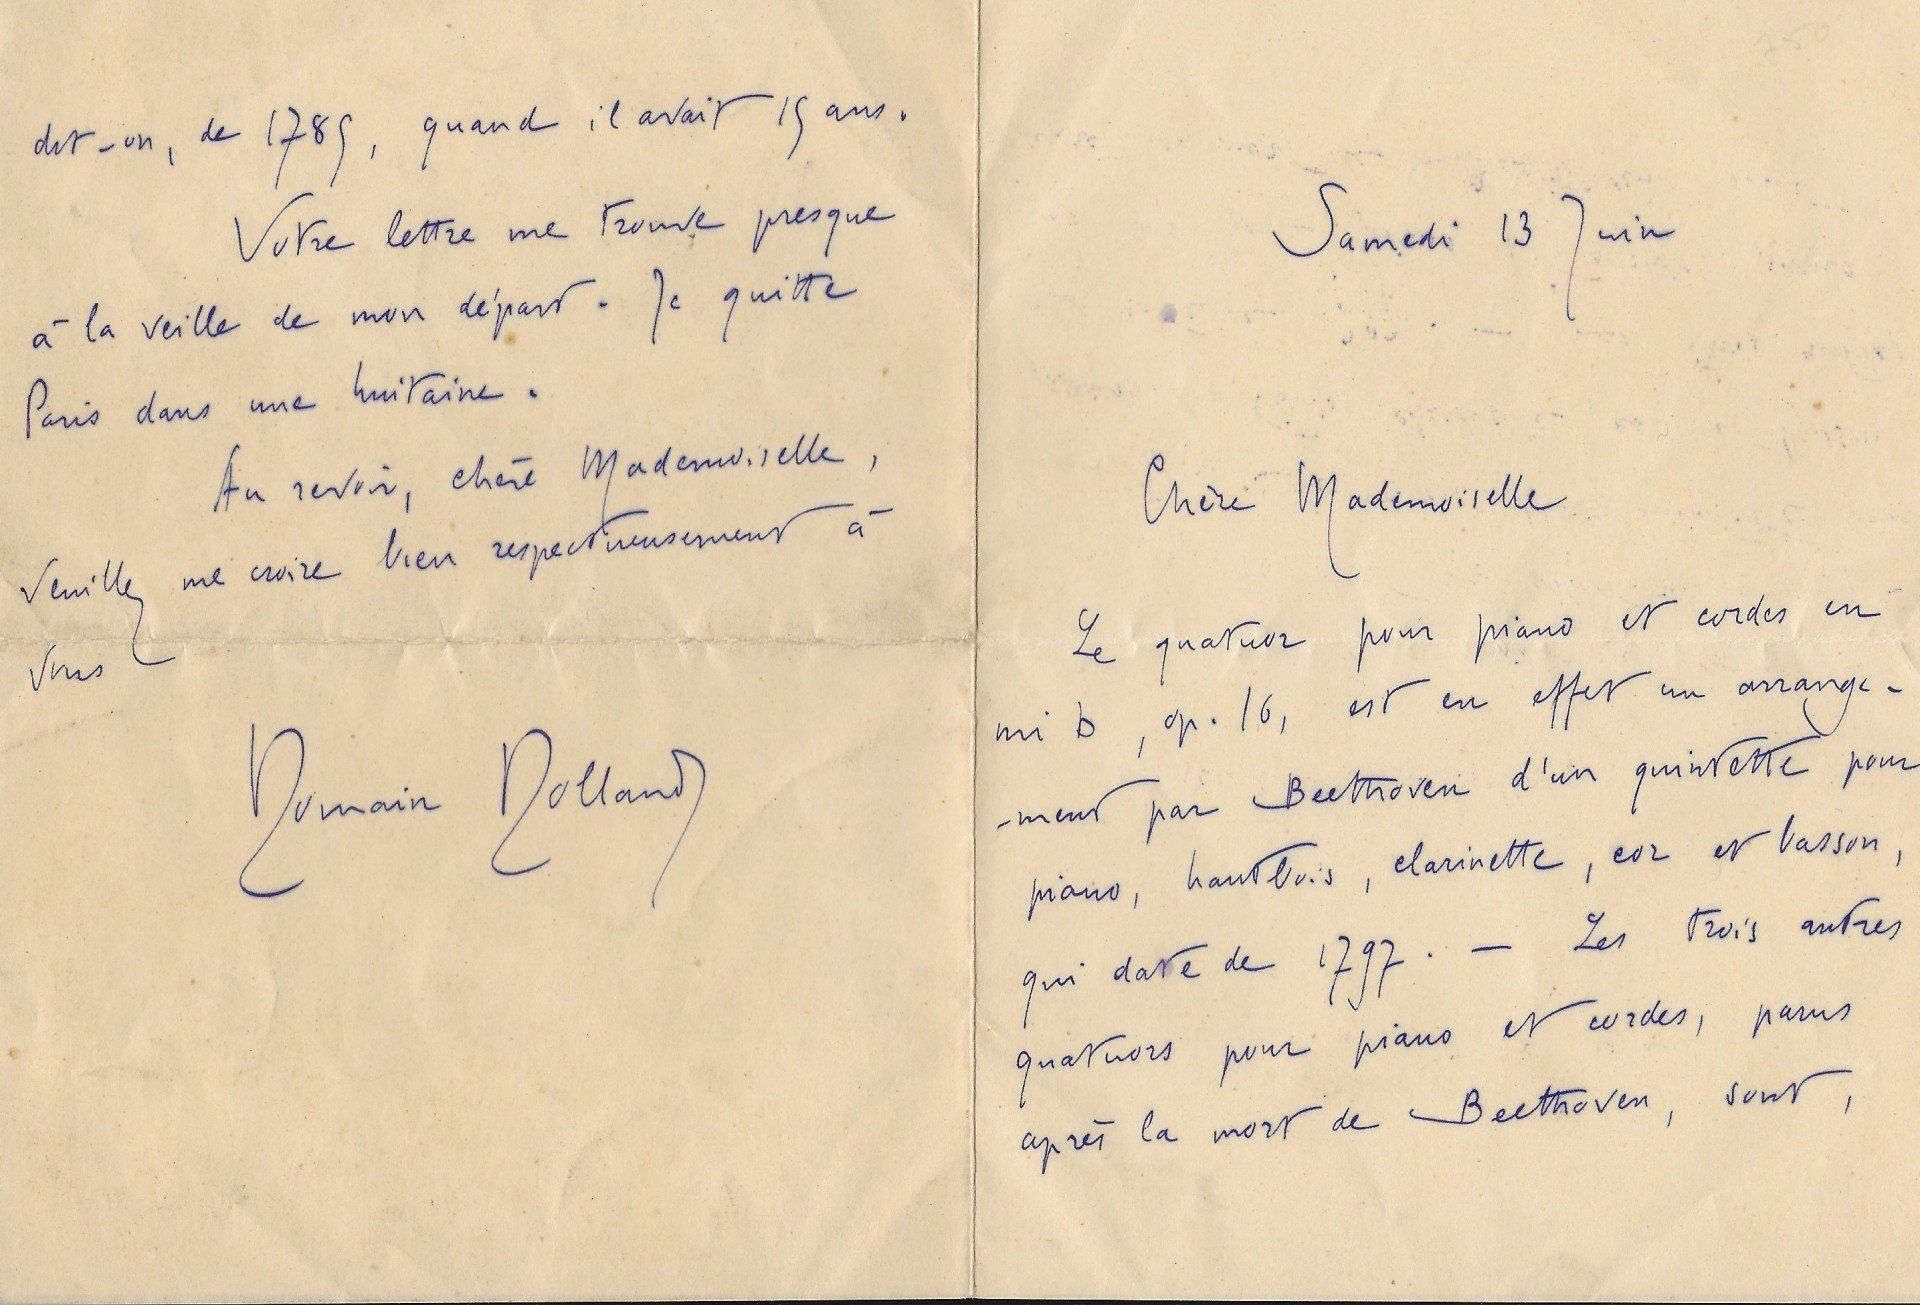 Samedi 13 Juin
Chère Mademoiselle
Le quatuor pour piano et cordes en
mi b, op. 16, est en effet un arrange-
-ment par Beethoven d'un quintette pour
piano, hautbois, clarinette, cor et basson,
qui date de 1797. — Les trois autres
quatuors pour piano et cordes, parus
après la mort de Beethoven, sont,
dit-on, de 1785, quand il avait 15 ans.
Votre lettre me trouve presque
à la veille de mon départ. Je quitte
Paris dans une huitaine.
Au revoir, chère Mademoiselle,
veuillez me croire bien respectueusement à
vous
Romain Rolland